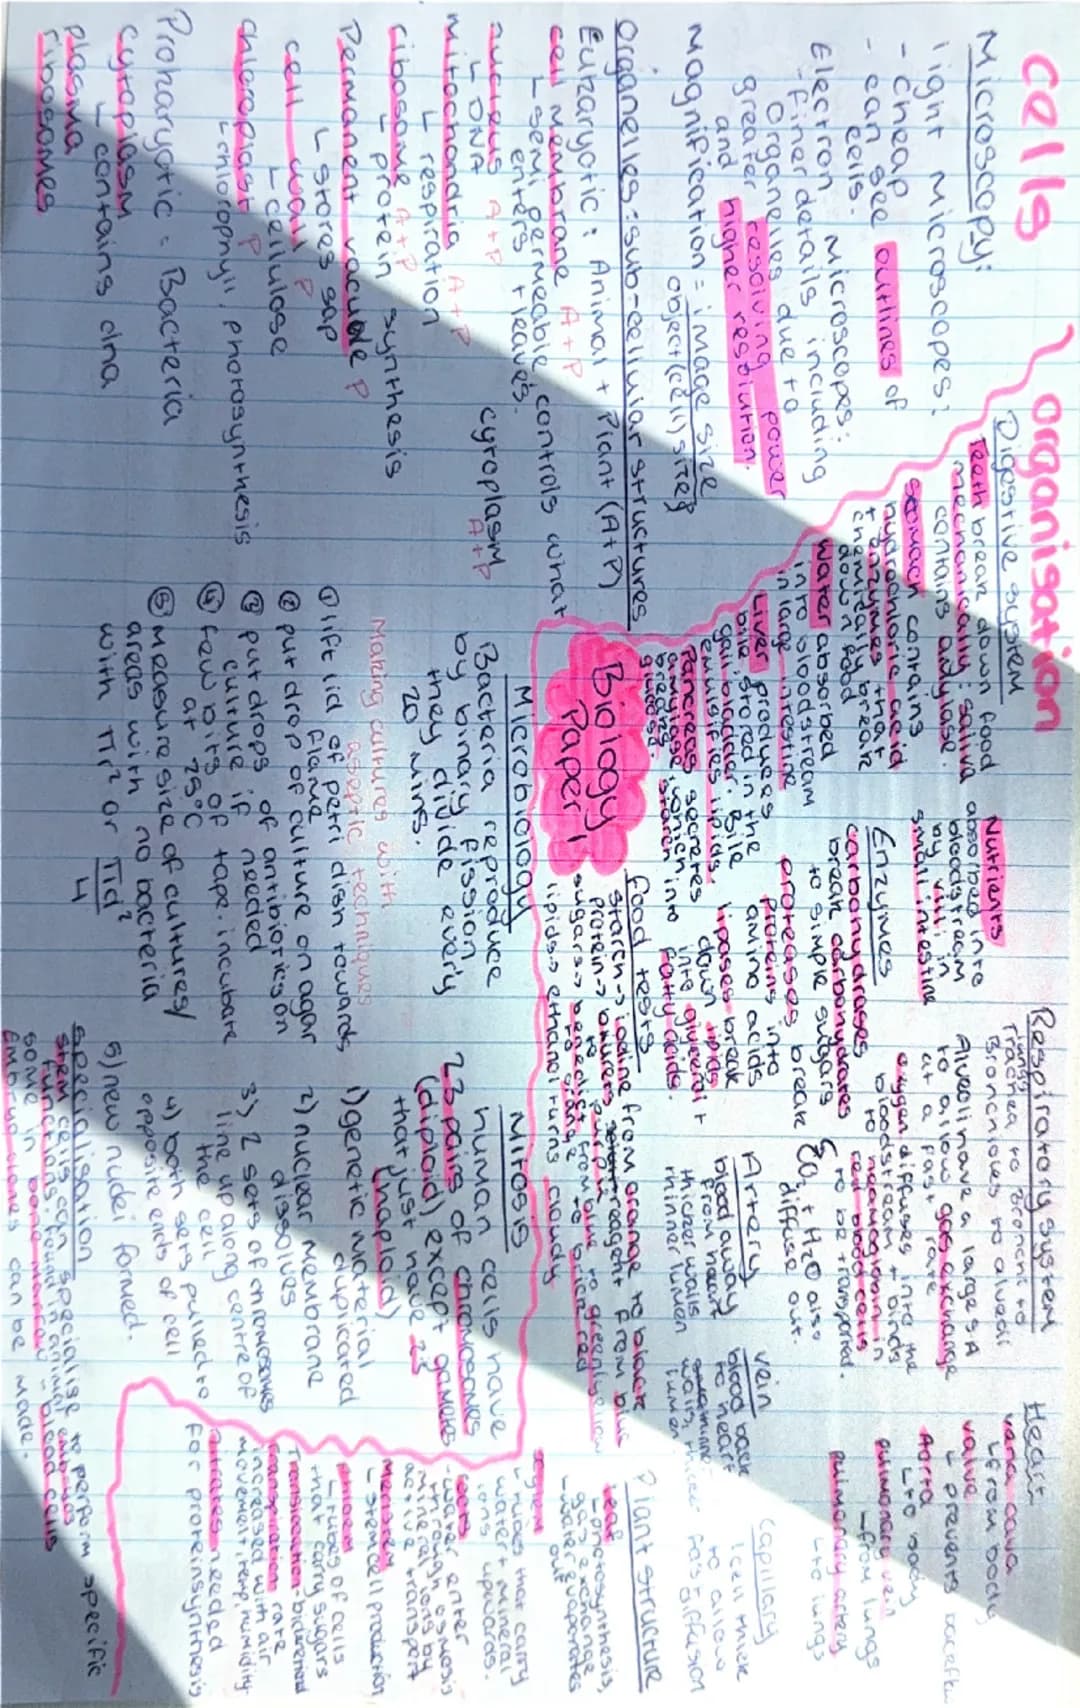 cells
Microscopy:
light microscopes:
- cheap
- can see outlines of
cells.
Electron microscopes:
- finer details including
organelles due to
greater resolving power
and higher resolution.
magnification = image size
object (cell) size
organelles: sub-cellular structures
Eukaryotic: Animal + Plant (A+P)
cell membrane A+P
↳ semi permeable, controls what
enters + leaves.
nucleus A+P
↳ DNA
cytoplasm
A+P
mitochondria A+P
↳ respiration
ribosome A+P
↳ protein synthesis
Permanent vacuole P
↳ stores sap
cell wall P
↳ cellulose
chloroplast P
↳ chlorophyll, photosynthesis
Prokaryotic = Bacteria
cytoplasm
↳ contains dna
plasma
ribosomes
organisation
Digestive system
Teeth break down food
mechanically: saliva
contains amylase.
stomach contains
hydrochloric acid
+ enzymes that
chemically break
down food
water absorbed
into bloodstream
in large intestine
Liver produces
bile stored in the
gall bladder. Bile
emulsifies lipids.
Pancreas secretes
amylase which
breaks starch into
glucose.
Nutrients
absorbed into
bloodstream
by villi in
small intestine
Enzymes
carbohydrases
break carbohydrates
to simple sugars
proteases break
proteins into
amino acids
lipases break
down lipids
into glycerol +
fatty acids.
Food tests
starch → iodine from orange to black
protein → biurets reagent from blue
to purple
sugars → benedicts from blue to green/yellow
to orange to brick red
lipids → ethanol turns cloudy
Biology
Paper 1
Respiratory system
lungs
Trachea to bronchi to
Bronchioles to alveoli
Alveoli have a large SA
to allow gas exchange
at a fast rate
oxygen diffuses into the
bloodstream + binds
to haemoglobin in
red blood cells
to be transported.
CO₂ + H₂O also
diffuse out.
Artery
blood away
from heart
thicker walls
thinner lumen
vein
blood back
to heart
thinner
walls, thicker
lumen
capillary
1 cell thick
to allow
fast diffusion
Heart
vena cava
↳ from body
valve
↳ prevents backflow
Aorta
↳ to body
pulmonary vein
↳ from lungs
pulmonary artery
↳ to lungs
Plant structure
Leaf
↳ photosynthesis,
gas exchange,
water evaporates
out
xylem
↳ tubes that carry
water + mineral
ions upwards.
roots
- water enter
through osmosis
mineral ions by
active transport
Meristem
↳ stem cell production
Phloem
↳ tubes of cells
that carry sugars
Translocation - bidirectional
transpiration rate
increased with air
movement, temp, humidity.
nitrates needed
for protein synthesis
Microbiology
Bacteria reproduce
by binary fission
they divide every
20 mins.
Making cultures with
aseptic techniques
① lift lid of petri dish towards
flame
② put drop of culture on agar
③ put drops of antibiotics on
culture if needed
④ few bits of tape. incubate
at 25°C
⑤ measure size of cultures/
areas with no bacteria
with πr² or πd²
4
Mitosis
human cells have
23 pairs of chromosomes
(diploid) except gametes
that just have 23
(haploid)
1) genetic material
duplicated
2) nuclear membrane
dissolves
3) 2 sets of chromosomes
line up along centre of
the cell
4) both sets pulled to
opposite ends of cell
5) new nuclei formed.
specialisation
stem cells can specialise to perform specific
functions. found in animal embryos
some in bone marrow - blood cells
Embryo clones can be made.